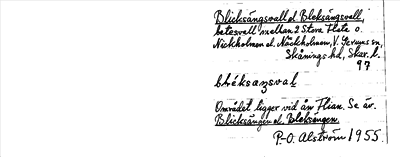 Blicksängsvall el. Bleksängsvall,
betesvall mellan 2 Stora Flate o.
Näckholmen el. Nöckholmen, V. Gerums sn,
Skånings hd, Skar. l.
97
bléksaŋsval
Området ligger vid ån Flian. Se är.
Blicksängen el. Bleksängen.
P-O. Alström 1955.